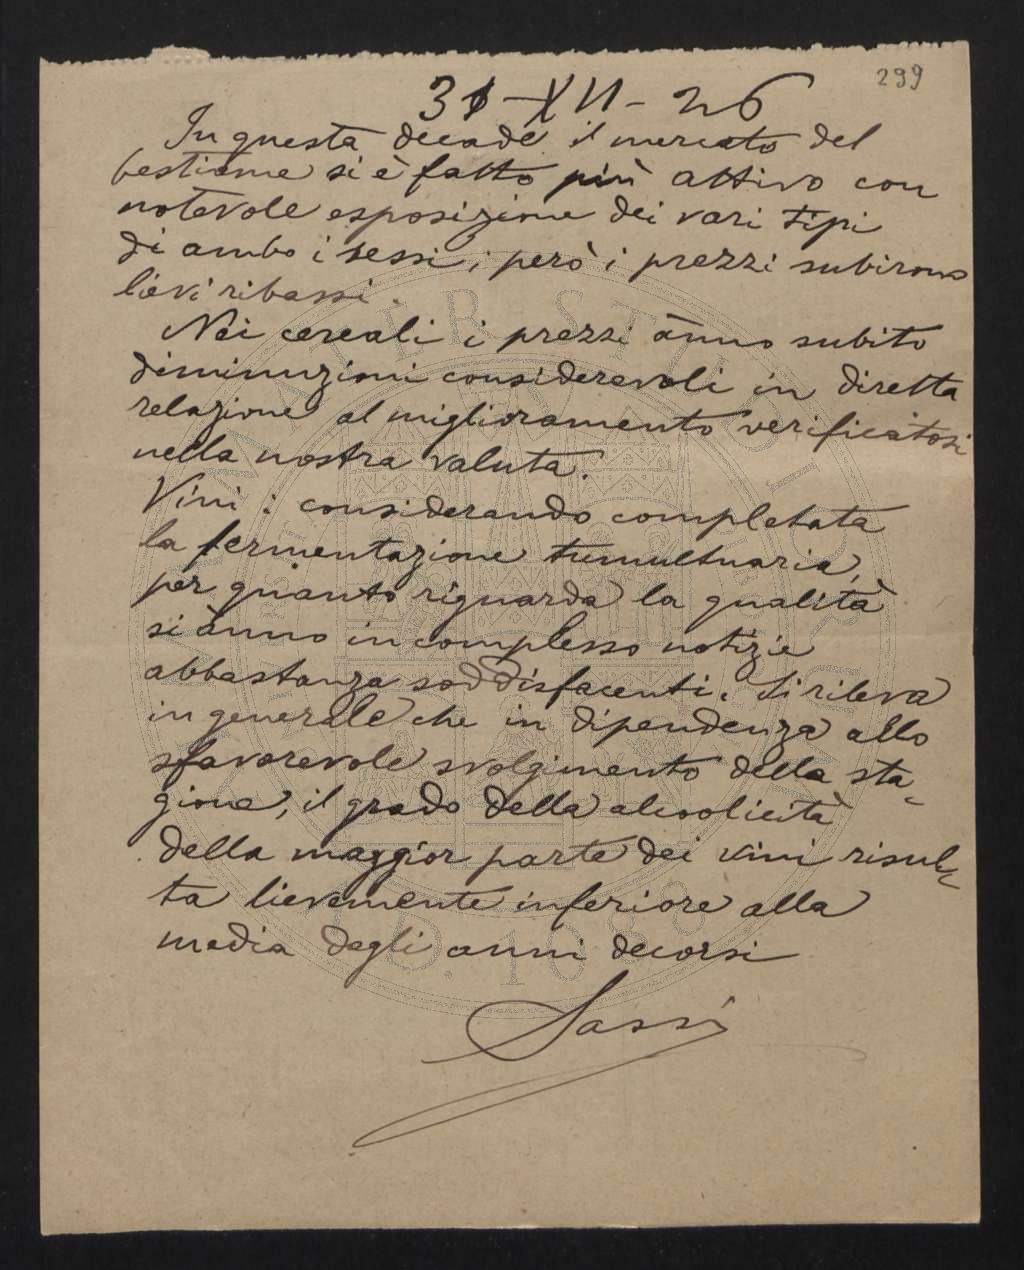 299
31-XII-26
In questa decade il mercato del
bestiame si è fatto più attivo con
notevole esposizione dei vari tipi
di ambo i sessi; però i prezzi subirono
lievi ribassi.
Nei cereali i prezzi ànno subito
diminuzioni considerevoli in diretta
relazione al miglioramento verificatosi
nella nostra valuta.
Vini: considerando completata
la fermentazione tumultuaria,
per quanto riguarda la qualità
si ànno in complesso notizie
abbastanza soddisfacenti. Si rileva
in generale che in dipendenza allo
sfavorevole svolgimento della sta-
gione, il grado della alcoolicità
della maggior parte dei vini risul-
ta lievemente inferiore alla
media degli anni decorsi
Sassi
ALMA MATER STUDIORUM
A.D. 1088